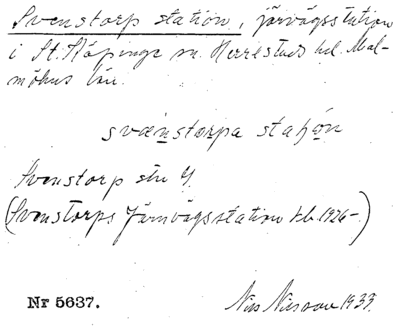 Svenstorp station, järvägsstation
i St. Köpinge sn. Herrestads hd. Mal-
möhus län.
svænstorpa staʃọn
Svenstorp stn
(Svenstorps Järnvägsstation kb. 1926-)
Nr 5637.
Nils Nilsson 1933.